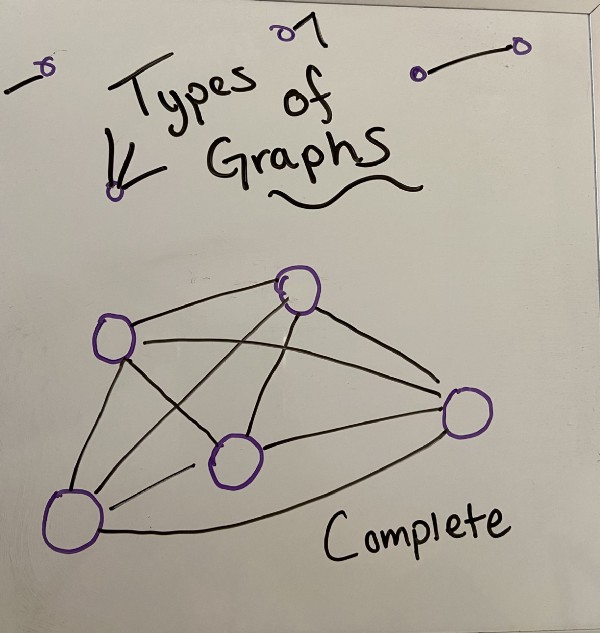 Types of
Graphs
Complete